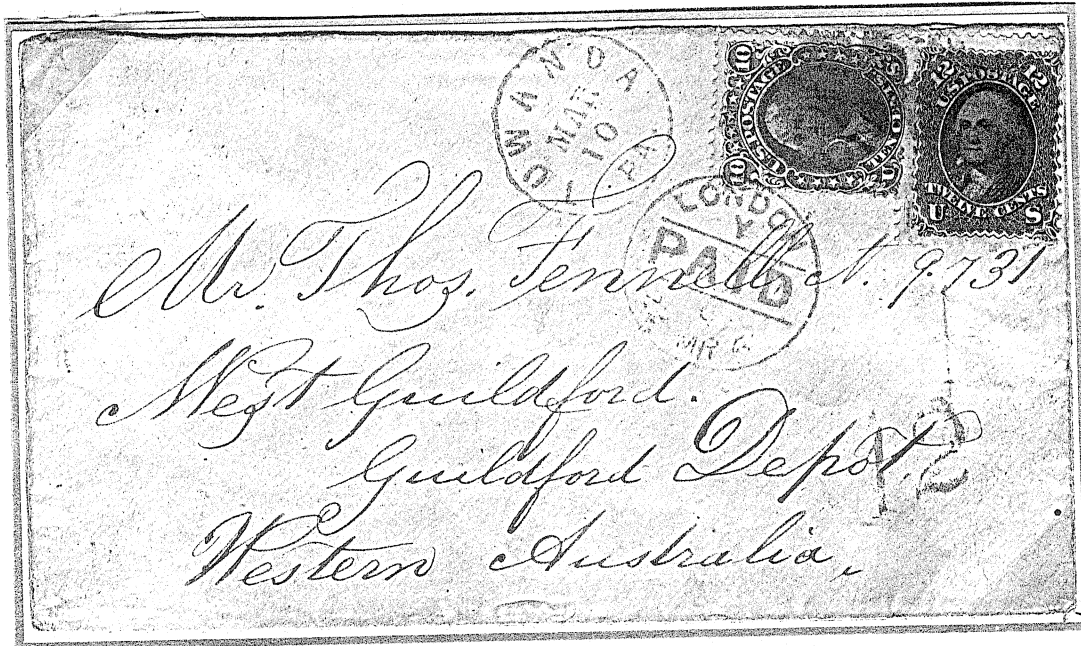 TOWANDA
MAR
10
PA.
10 10
U.S. POSTAGE
TEN CENTS
12 12
U.S. POSTAGE
TWELVE CENTS
U S
LONDON
PAID
MR
Mr. Thos. Fennell 9.731
West Guildford.
Guildford Depot.
Western Australia,
12